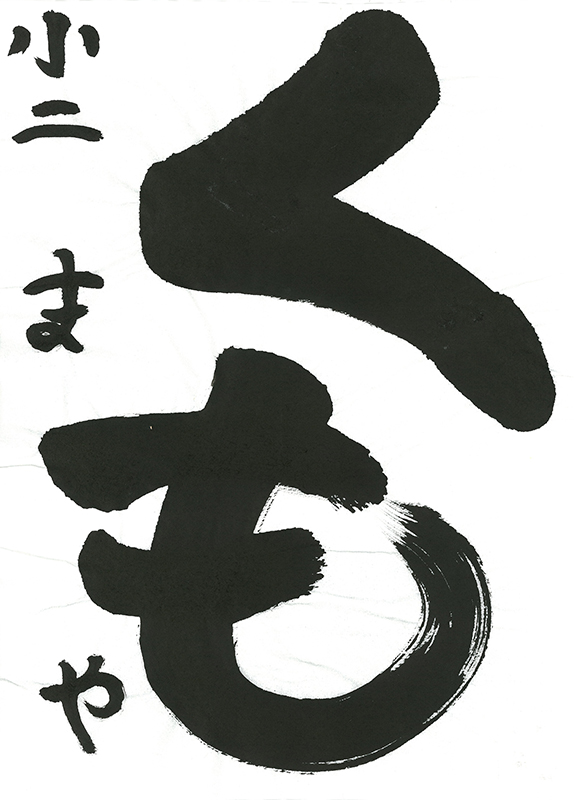 くも
小二 まや